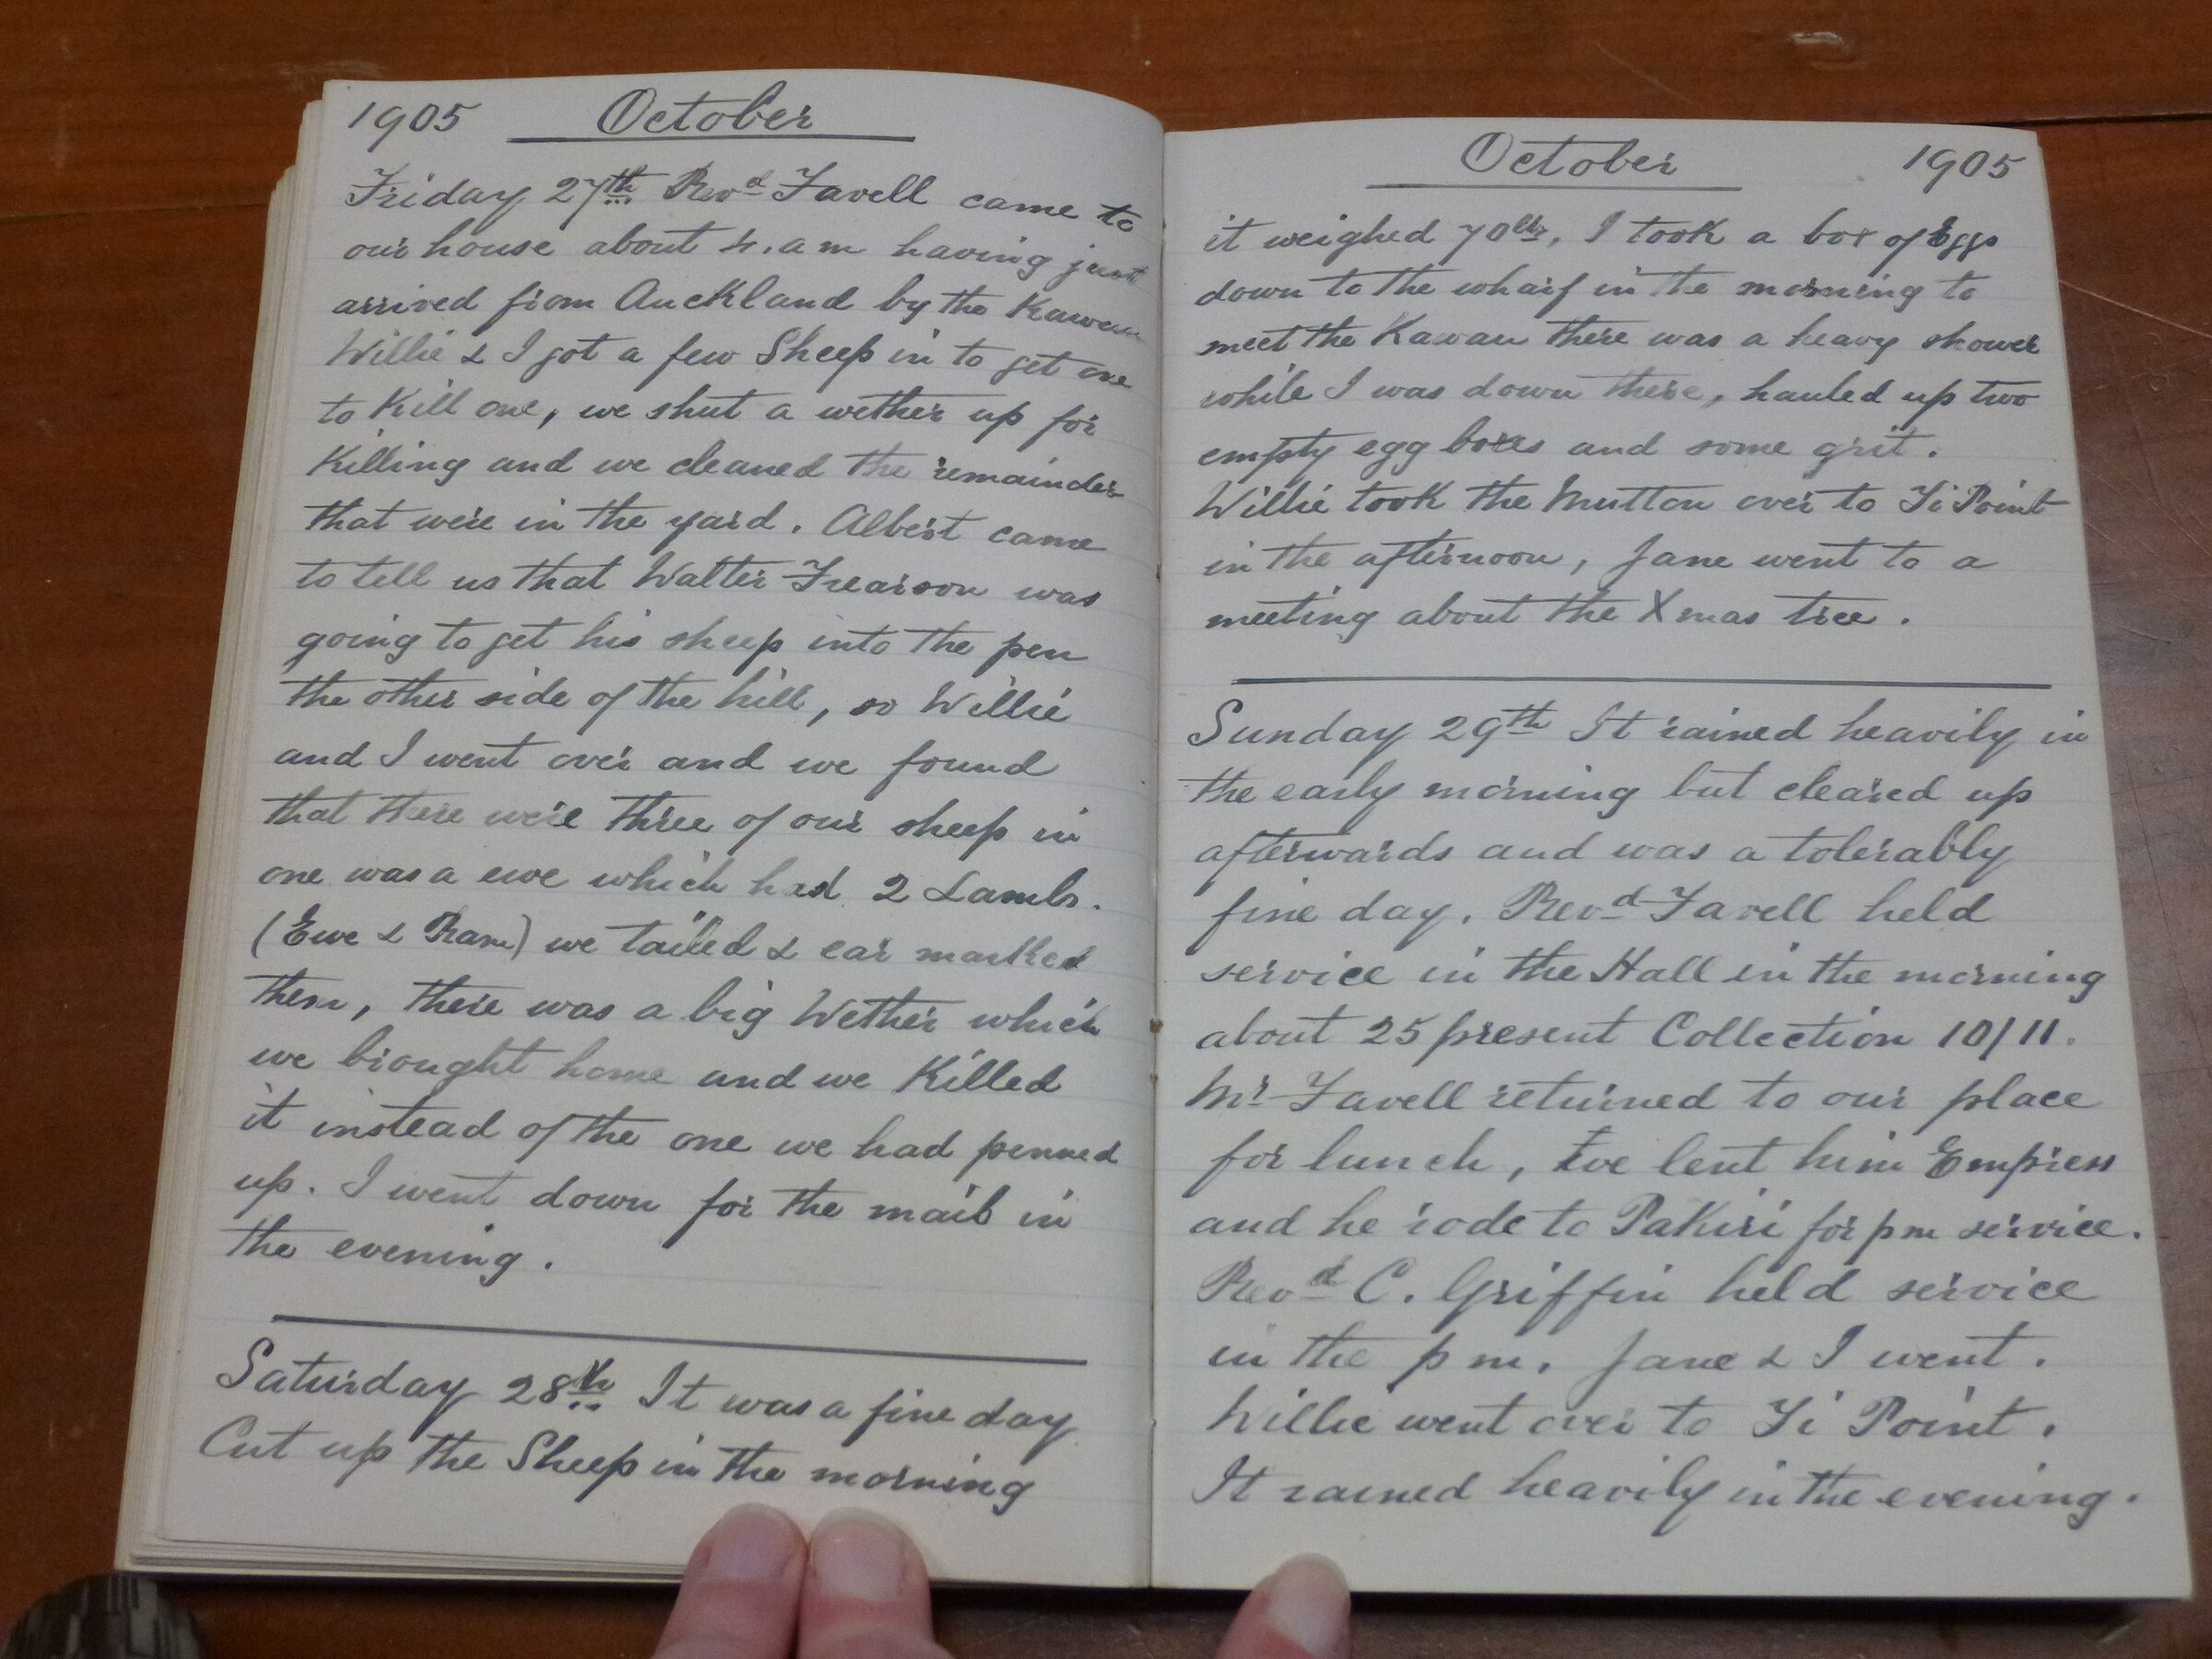 1905 October
Friday 27th Revd Favell came to
our house about 4. am having just
arrived from Auckland by the Kawau
Willie & I got a few Sheep in to get one
to Kill one, we shut a wether up for
Killing and we cleaned the remainder
that were in the yard. Albert came
to tell us that Walter Frearson was
going to get his sheep into the pen
the other side of the hill, so Willie
and I went over and we found
that there were three of our sheep in
one was a ewe which had 2 Lambs.
(Ewe & Ram) we tailed & ear marked
them, there was a big Wether which
we brought home and we Killed
it instead of the one we had penned
up. I went down for the mail in
the evening.
Saturday 28th It was a fine day
Cut up the Sheep in the morning
October 1905
it weighed 70lbs, I took a box of Eggs
down to the wharf in the morning to
meet the Kawau there was a heavy shower
while I was down there, hauled up two
empty egg boxes and some grit.
Willie took the Mutton over to Ti Point
in the afternoon, Jane went to a
meeting about the Xmas tree.
Sunday 29th It rained heavily in
the early morning but cleared up
afterwards and was a tolerably
fine day. Revd Favell held
service in the Hall in the morning
about 25 present Collection 10/11.
Mr Favell returned to our place
for lunch, we lent him Empress
and he rode to Pakiri for pm service.
Revd C. Griffin held service
in the pm. Jane & I went.
Willie went over to Ti Point.
It rained heavily in the evening.